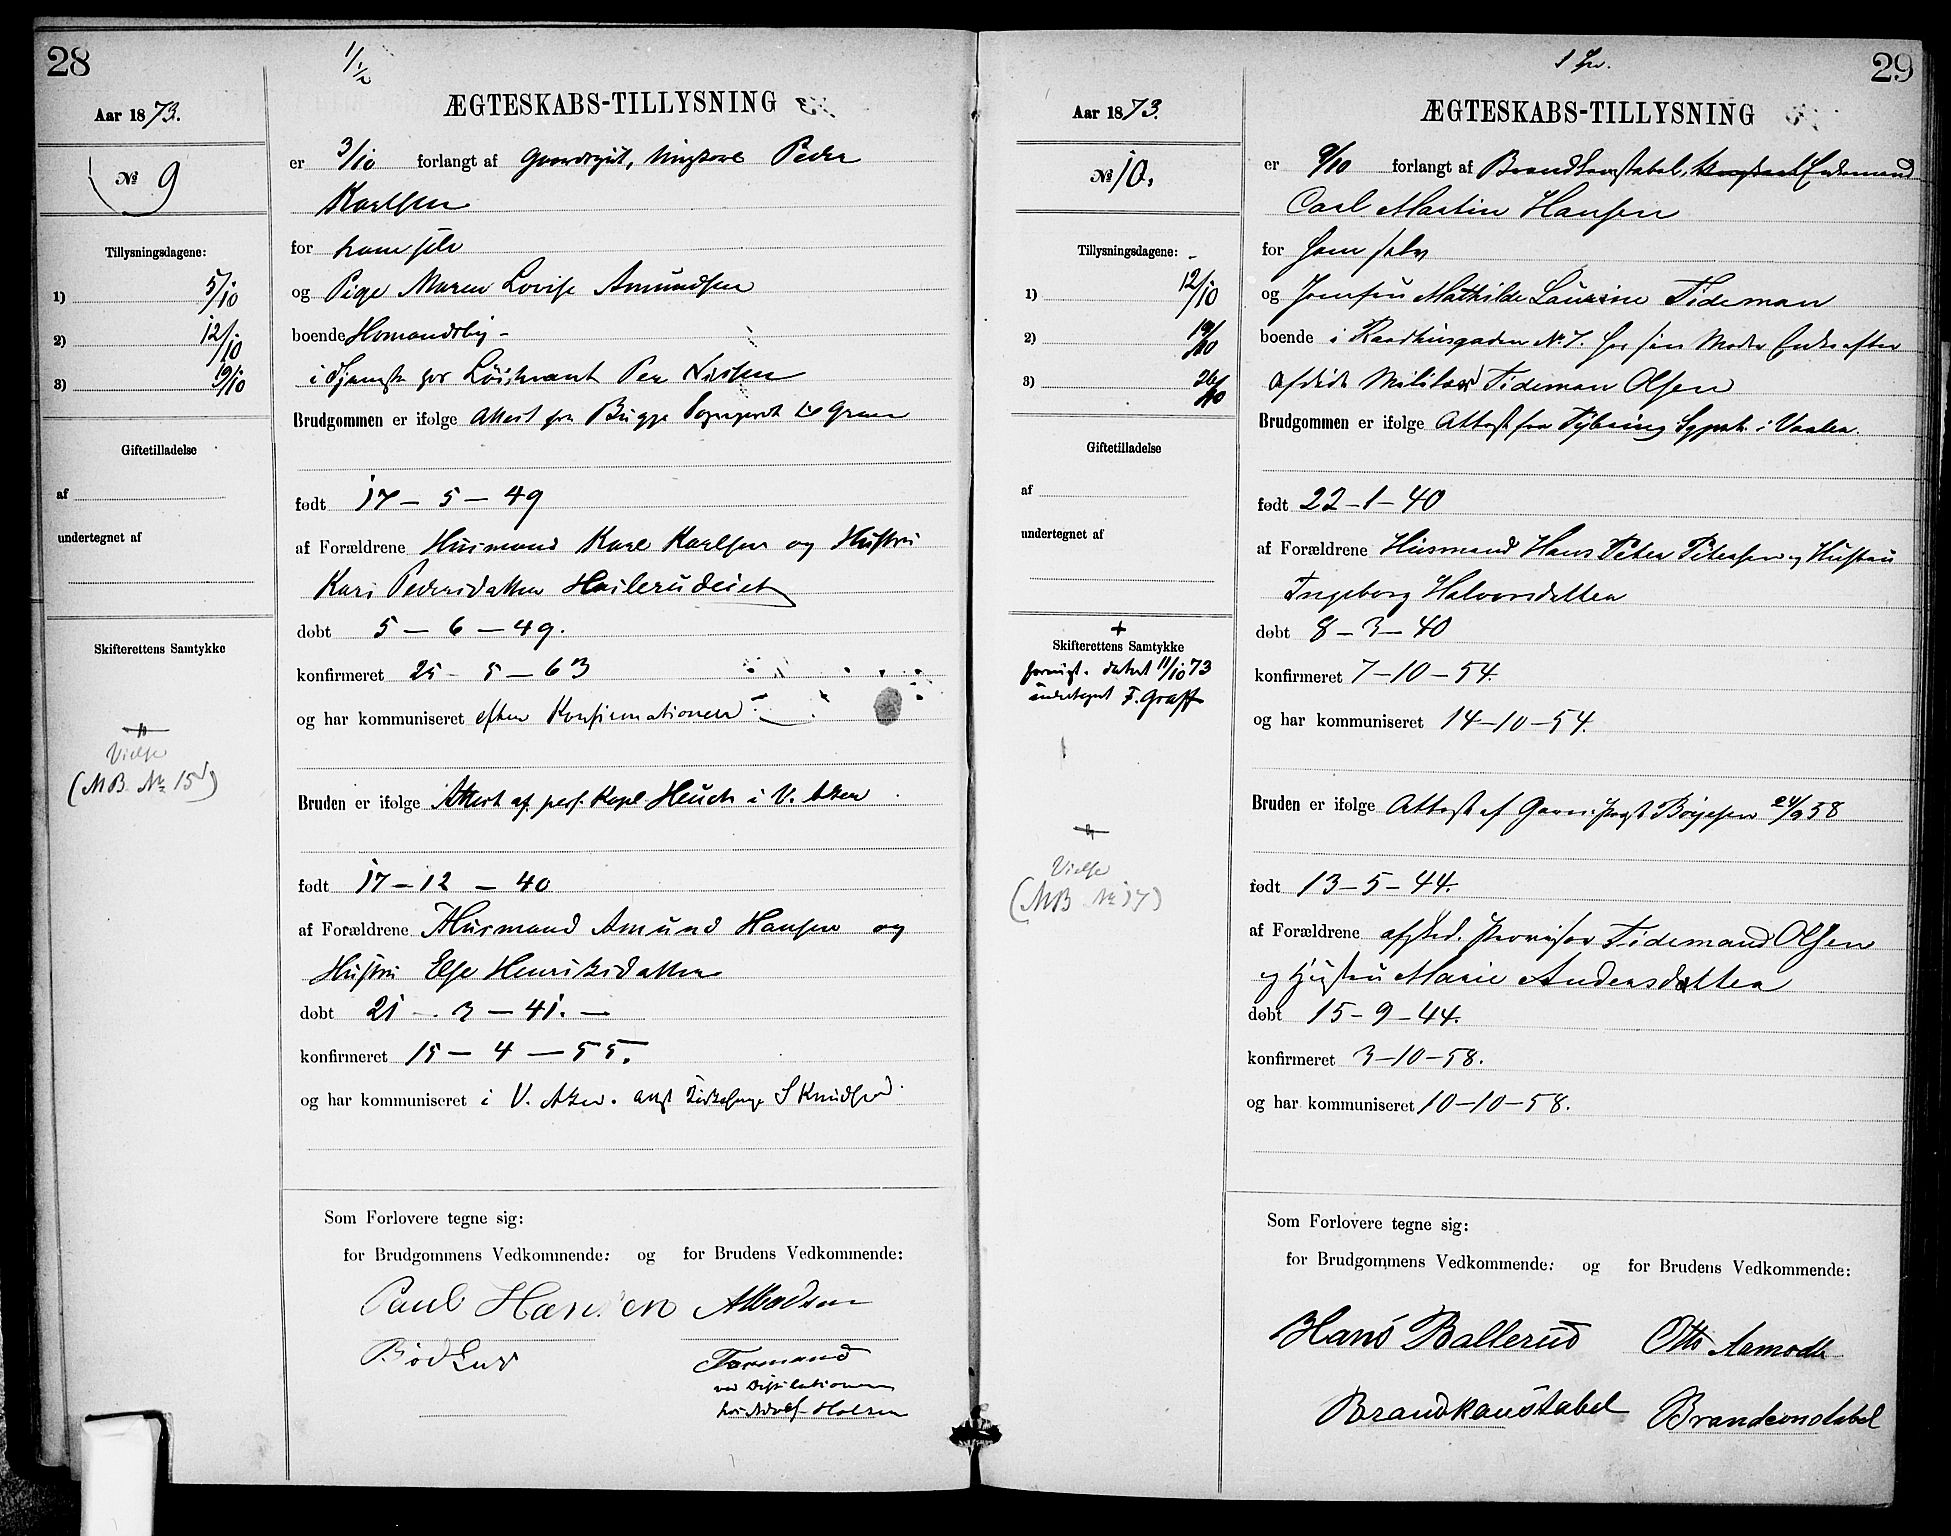 28
1/1/2
Aar 1873.
ÆGTESKABS-TILLYSNING
№ 9
er 3/10 forlangt af Gaardsgut, Ungkarl Peder
Karlsen
Tillysningsdagene:
for ham selv
1) 5/10
og Pige Maren Lovise Amundsen
2) 12/10
boende Homandsby -
3) 19/10
i Tjeneste hos Löitnant Per Nissen
Brudgommen er ifølge Attest fra Bugge Sognepræst til Gran
Giftetilladelse
født 17 - 5 - 49
af
undertegnet af
af Forældrene Husmand Karl Karlsen og Hustru
Kari Pedersdatter Heilerudeiet
døbt 5 - 6 - 49.
Skifterettens Samtykke
konfirmeret 25 - 5 - 63
og har kommuniseret efter Konfirmationen
Vielse
(MB. № 15)
Bruden er ifølge Attest af pers. Kapl Heuch i V. Aker
født 17 - 12 - 40
af Forældrene Husmand Amund Hansen og
Hustru Else Henriksdatter
døbt 21 - 3 - 41. -
konfirmeret 15 - 4 - 55.
og har kommuniseret i V. Aker. Kirkesanger S Knudsen
Som Forlovere tegne sig:
for Brudgommens Vedkommende: og for Brudens Vedkommende:
Paul Hansen AMadsen
Bödker Formand
ved Distilationen
hos Adolf Holsen
29
Aar 1873.
ÆGTESKABS-TILLYSNING
№ 10.
er 9/10 forlangt af Brandkonstabel, Ungkarl Enkemand
Carl Martin Hansen
Tillysningsdagene:
for ham selv
1) 12/10
og Jomfru Mathilde Laurine Tideman
2) 19/10
boende i Raadhusgaden № 7. hos sin Moder Enke efter
3) 26/10
Afdøde Militær Tideman Olsen
Brudgommen er ifølge Attest fra Tybring Sgprst. i Vaaler.
Giftetilladelse
født 22 - 1 - 40
af
undertegnet af
af Forældrene Husmand Hans Peter Petersen og Hustru
Ingeborg Halvorsdatter
døbt 8 - 3 - 40
Skifterettens Samtykke
forevist. datert 11/10 73
undertegnet F. Graff
konfirmeret 7 - 10 - 54.
og har kommuniseret 14 - 10 - 54.
Vielse
(MB № 17)
Bruden er ifølge Attest af Garn.prest Böyesen 24/9 58
født 13 - 5 - 44.
af Forældrene afsked. Tidemand Olsen
og Hustru Marie Andersdatter
døbt 15 - 9 - 44.
konfirmeret 3 - 10 - 58.
og har kommuniseret 10 - 10 - 58.
Som Forlovere tegne sig:
for Brudgommens Vedkommende: og for Brudens Vedkommende:
Hans Ballerud Otto Aamodt
Brandkonstabel Brandconstabel